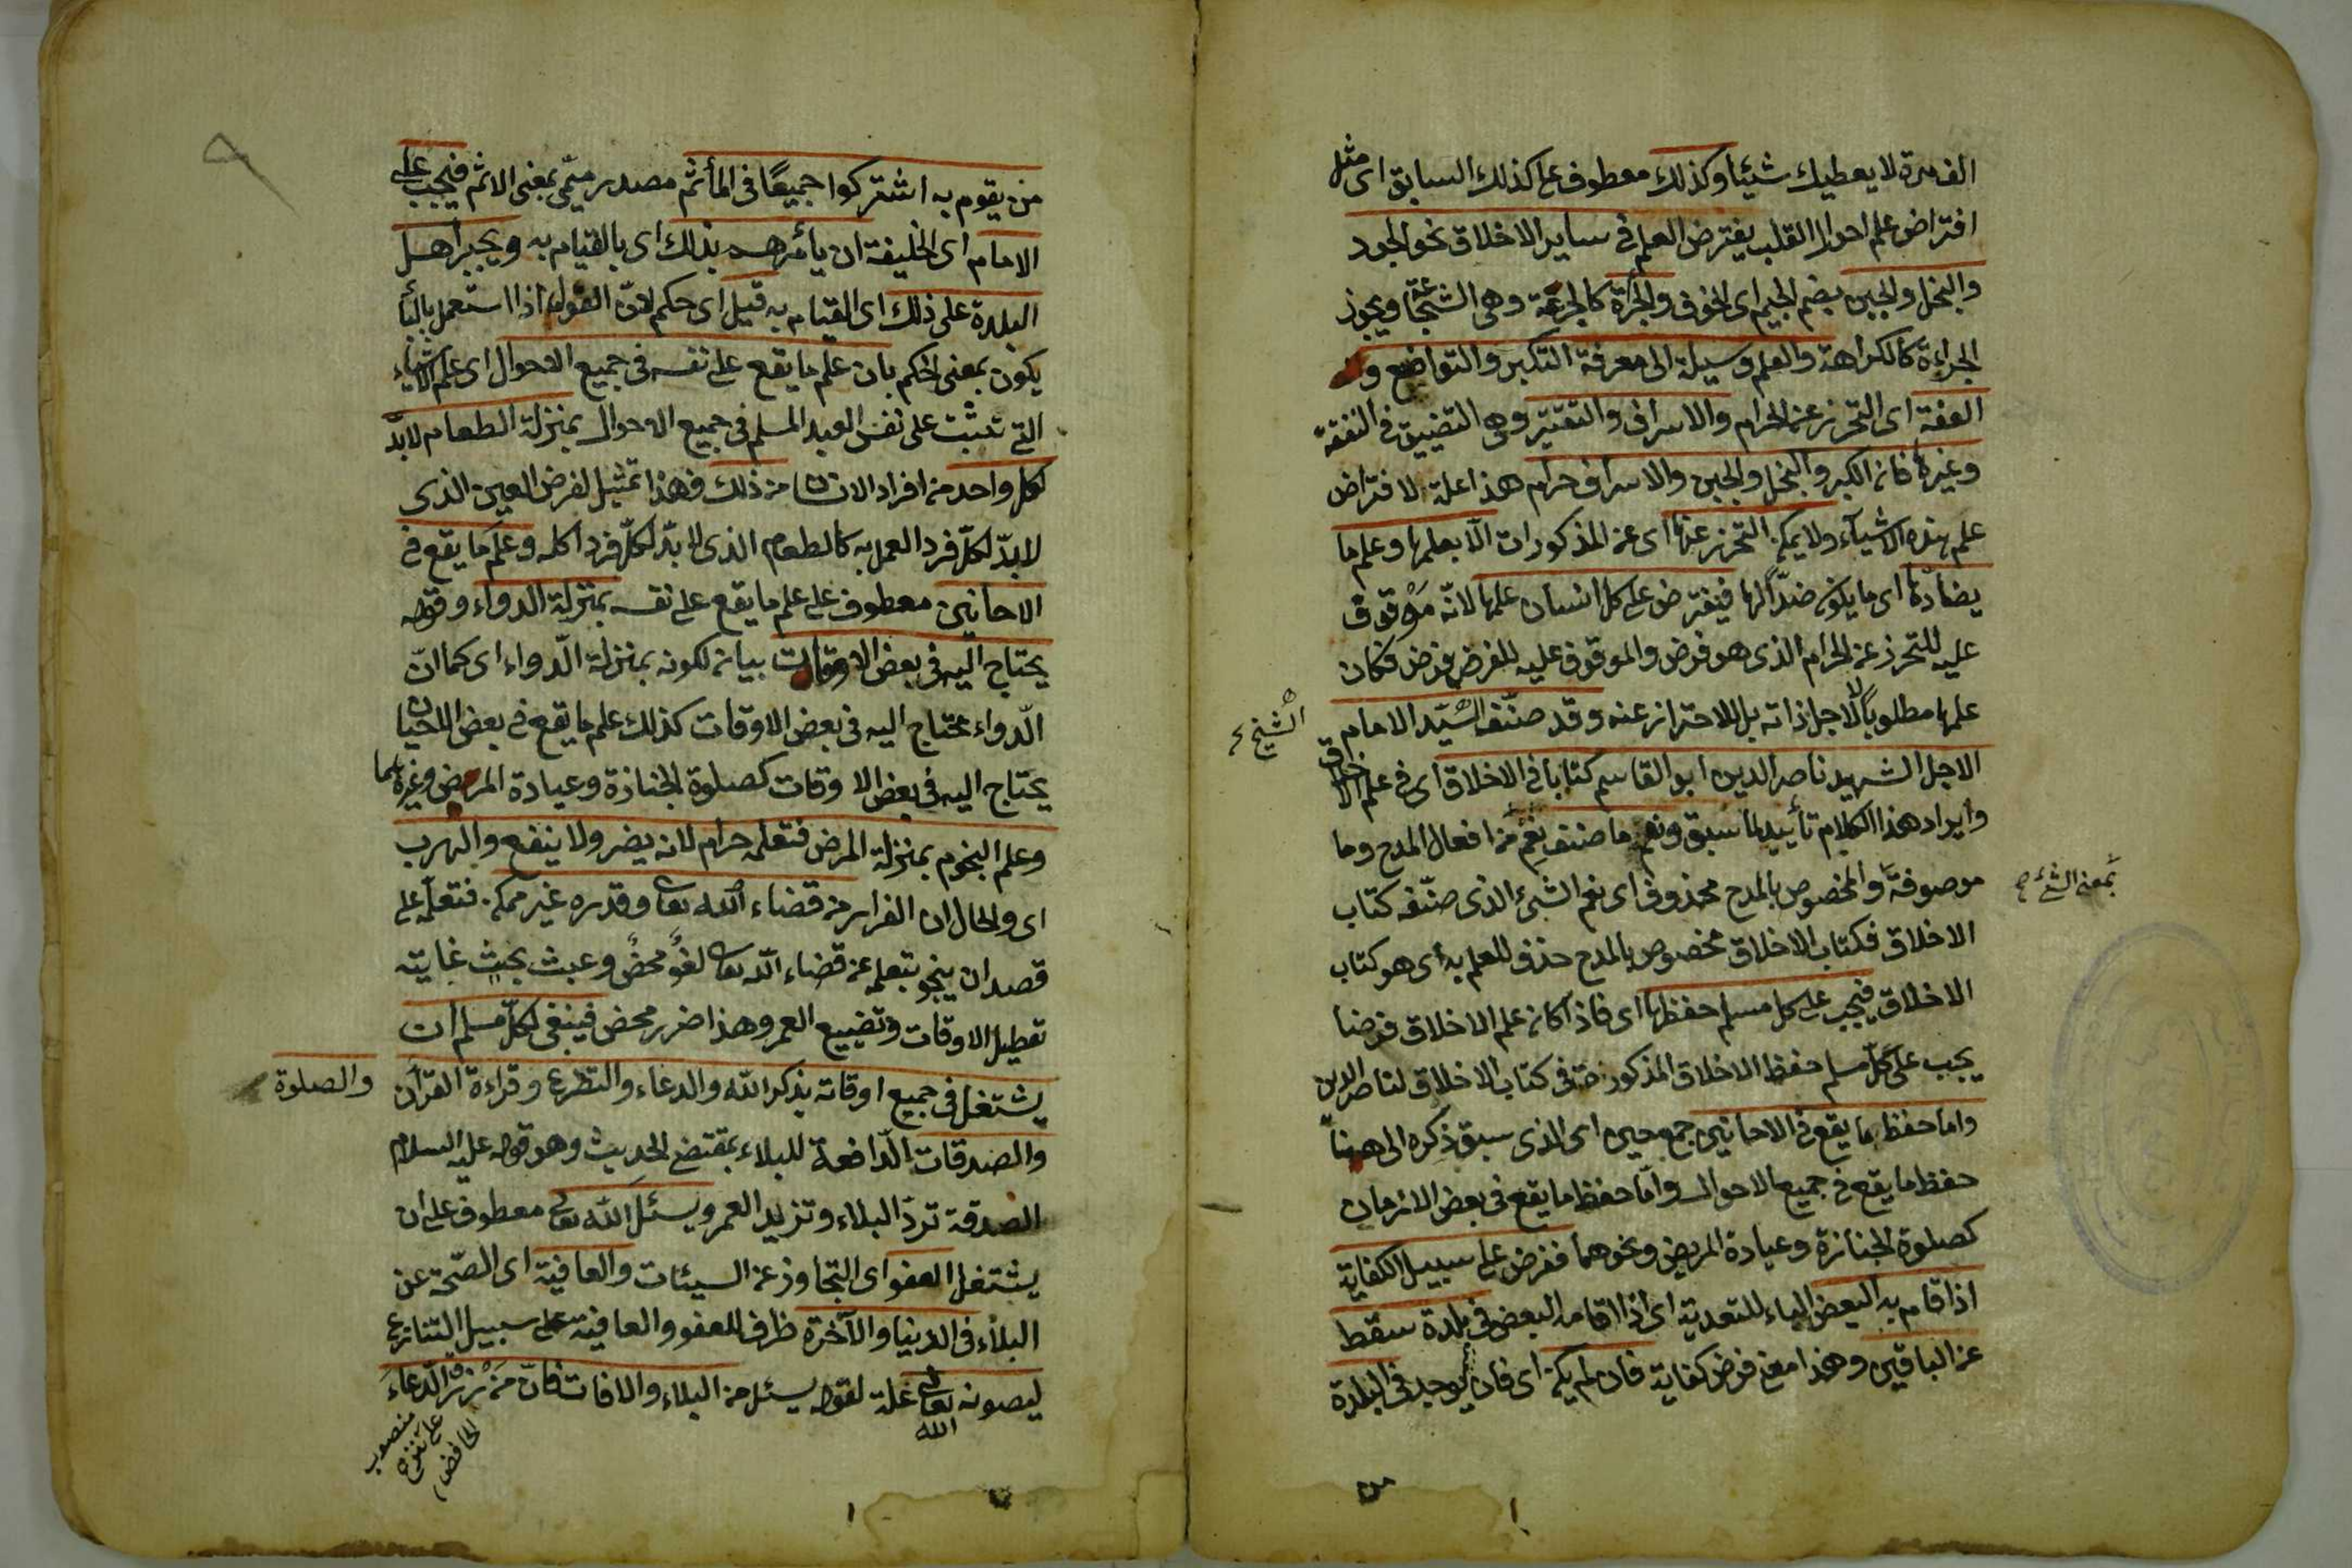 الف مرة لا يعطيك شيئا وكذلك معطوف على كذلك السابق اى مثل
افتراض علم احوال القلب يفترض العلم فى ساير الاخلاق نحو الجود
والبخل والجبن بضم الجيم اى الخوف والجرأة كالجرعة وهى الشجاعة ويجوز
الجراءة كالكراهة والعلم وسيلة الى معرفة التكبر والتواضع و
العفة اى التحرز عن الحرام والاسراف والتقتير وهى التضييق فى النفقة
وغيرها فان الكبر والبخل والجبن والاسراف حرام هذا علة لافتراض
علم هذه الاشياء ولا يمكن التحرز عنها اى عن المذكورات الا بعلمها وعلم ما
يضادها اى ما يكون ضدّا لها فيفترض على كل انسان علمها لانّه موقوف
عليه للتحرز عن الحرام الذى هو فرض والموقوف عليه للفرض فرض فكان
علمها مطلوبا لا لاجل ذاته بل للاحتراز عنه وقد صنّف السّيّد الامام
الشيخ
الاجل الشهيد ناصر الدين ابو القاسم كتابا فى الاخلاق اى فى علم الاخلاق
وايراد هذا الكلام تأييد لما سبق ونعم ما صنف نعم من افعال المدح وما
موصوفة والمخصوص بالمدح محذوف اى نعم الشئ الذى صنّفه كتاب
بمعنى الشئ
الاخلاق فكتاب الاخلاق مخصوص بالمدح حذف للعلم به اى هو كتاب
الاخلاق فيجب على كل مسلم حفظها اى فاذا كان علم الاخلاق فرضا
يجب على كلّ مسلم حفظ الاخلاق المذكورة فى كتاب الاخلاق لناصر الدين
واما حفظ ما يقع فى الاحايين جمع حين اى الذى سبق ذكره الى هنا
حفظ ما يقع فى جميع الاحوال وامّا حفظ ما يقع فى بعض الازمان
كصلوة الجنازة وعيادة المريض ونحوهما ففرض على سبيل الكفاية
اذا قام به البعض الباء للتعدية اى اذا اقامه البعض فى بلدة سقط
عن الباقين وهذا معنى فرض كفاية فان لم يكن اى فان لم يوجد فى البلدة
من
من يقوم به اشتركوا جميعًا فى المأثم مصدر ميمّى بمعنى الاثم فيجب على
الامام اى الخليفة ان يأمرهم بذلك اى بالقيام به ويجبر اهل
البلدة على ذلك اى القيام به قيل اى حكم لانّ القول اذا استعمل بالباء
يكون بمعنى الحكم بان علم ما يقع على نفسه فى جميع الاحوال اى علم الاشياء
التى تثبت على نفس العبد المسلم فى جميع الاحوال بمنزلة الطعام لابدّ
لكل واحد من افراد الانسان من ذلك فهذا تمثيل لفرض العين الذى
لابدّ لكلّ فرد العمل به كالطعام الذى لابدّ لكلّ فرد اكله وعلم ما يقع فى
الاحايين معطوف على علم ما يقع على نفسه بمنزلة الدواء وقوله
يحتاج اليه فى بعض الاوقات بيان لكونه بمنزلة الدّواء اى كما انّ
الدّواء يحتاج اليه فى بعض الاوقات كذلك علم ما يقع فى بعض الاحيان
يحتاج اليه فى بعض الاوقات كصلوة الجنازة وعيادة المريض وغيرهما
وعلم النجوم بمنزلة المرض فتعلمه حرام لانه يضر ولا ينفع والهرب
اى والحال ان الفرار من قضاء الله تعا وقدره غير ممكن فتعلّمه على
قصد ان ينجو بتعلمه عن قضاء الله تعا لغو محض وعبث بحيث غايته
تعطيل الاوقات وتضييع العمر وهذا ضرر محض فينبغى لكلّ مسلم ان
يشتغل فى جميع اوقاته بذكر الله والدعاء والتضرع وقراءة القرآن
والصلوة
والصدقات الدّافعة للبلاء بمقتضى الحديث وهو قوله عليه السلام
الصدقة تردّ البلاء وتزيد العمر ويسئل الله تعالى معطوف على ان
يشتغل العفو اى التجاوز عن السيئات والعافية اى الصّحّة عن
البلاء فى الدنيا والآخرة ظرف للعفو والعافية على سبيل التنازع
ليصونه تعالى علة لقوله يسئل من البلاء والافات فانّ من رزق الدّعاء
الله
منصوب
على نزع
الخافض